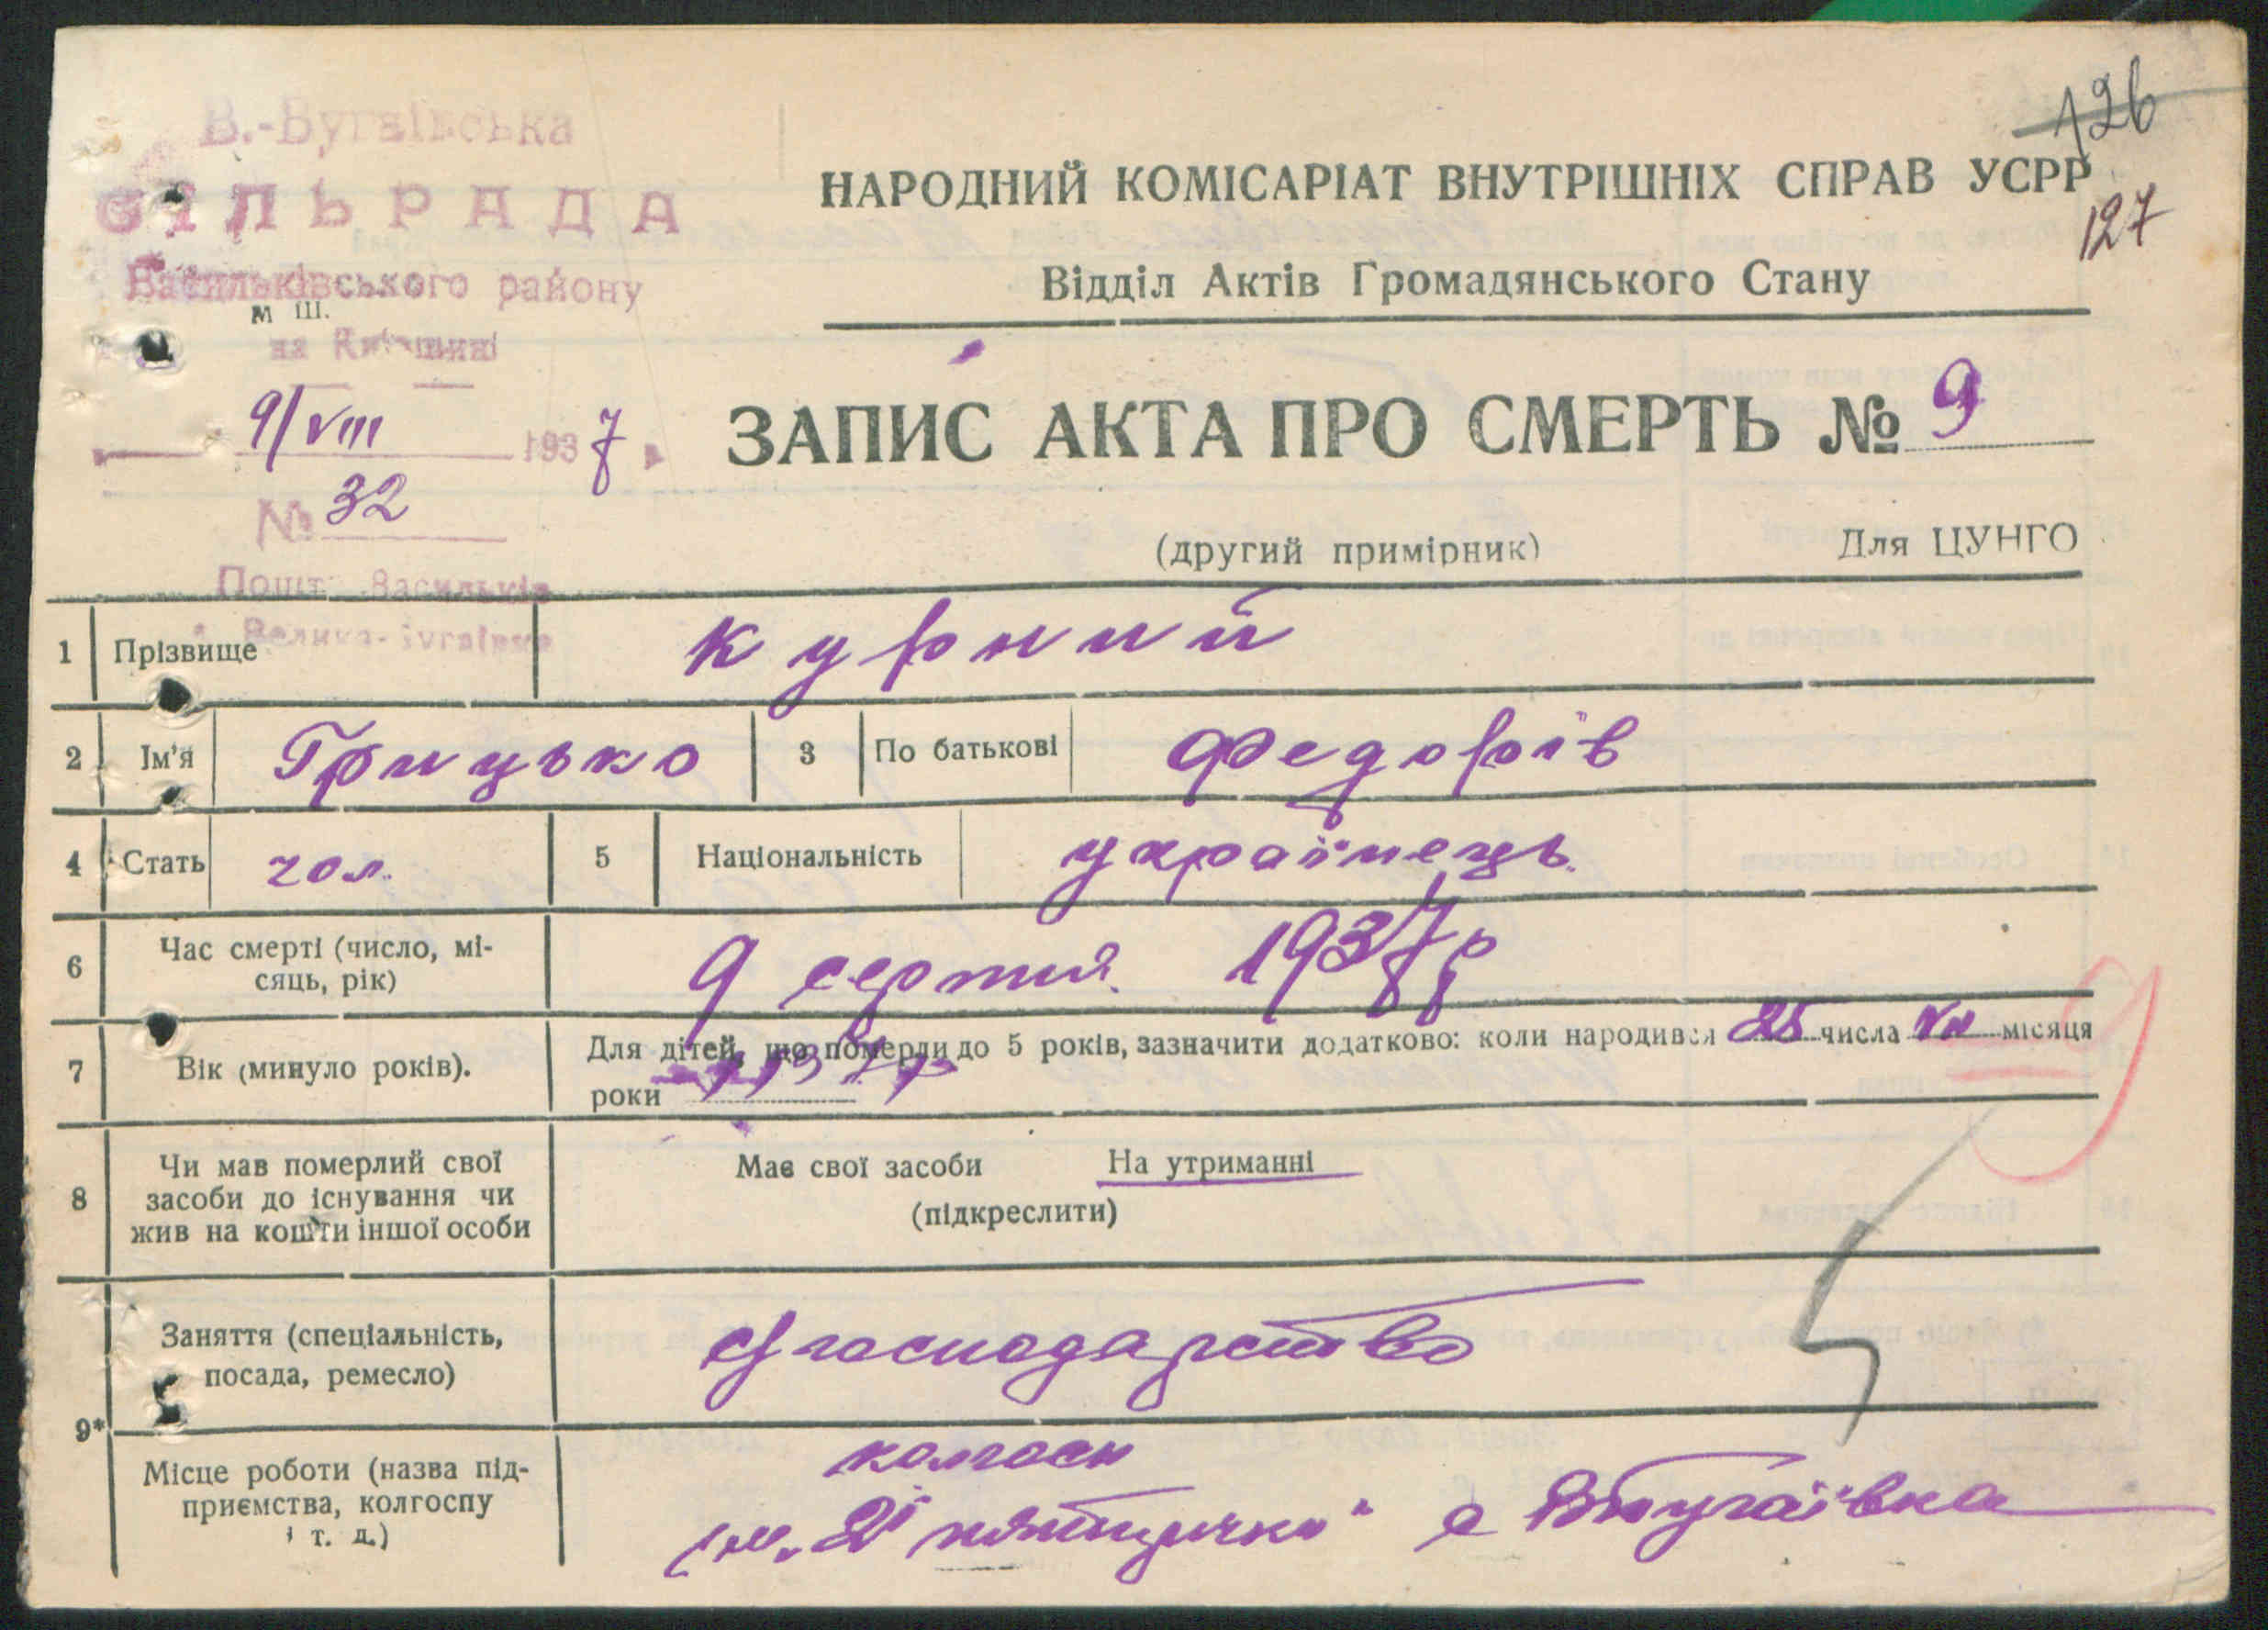 126
В.-Бугаївська
СІЛЬРАДА
Васильківського району
м Ш.
на Київщині
9/VIII 1937
№ 32
Пошт. Васильків
Велика-Бугаївка
НАРОДНИЙ КОМІСАРІАТ ВНУТРІШНІХ СПРАВ УСРР
127
Відділ Актів Громадянського Стану
ЗАПИС АКТА ПРО СМЕРТЬ № 9
(другий примірник) Для ЦУНГО
1 Прізвище Курний
2 Ім'я Грицько 3 По батькові Федорів
4 Стать чол. 5 Національність українець
6 Час смерті (число, мі-
сяць, рік) 9 серпня 1937 р
7 Вік (минуло років). Для дітей, що померли до 5 років, зазначити додатково: коли народився 25 числа VII місяця
роки 1937 р
8 Чи мав померлий свої
засоби до існування чи
жив на кошти іншої особи
Має свої засоби На утриманні
(підкреслити)
9* Заняття (спеціальність,
посада, ремесло) с/господарство
Місце роботи (назва під-
приємства, колгоспу
і т. д.)
колгосп
ім. "2і пятирічки" с Вбугаївка